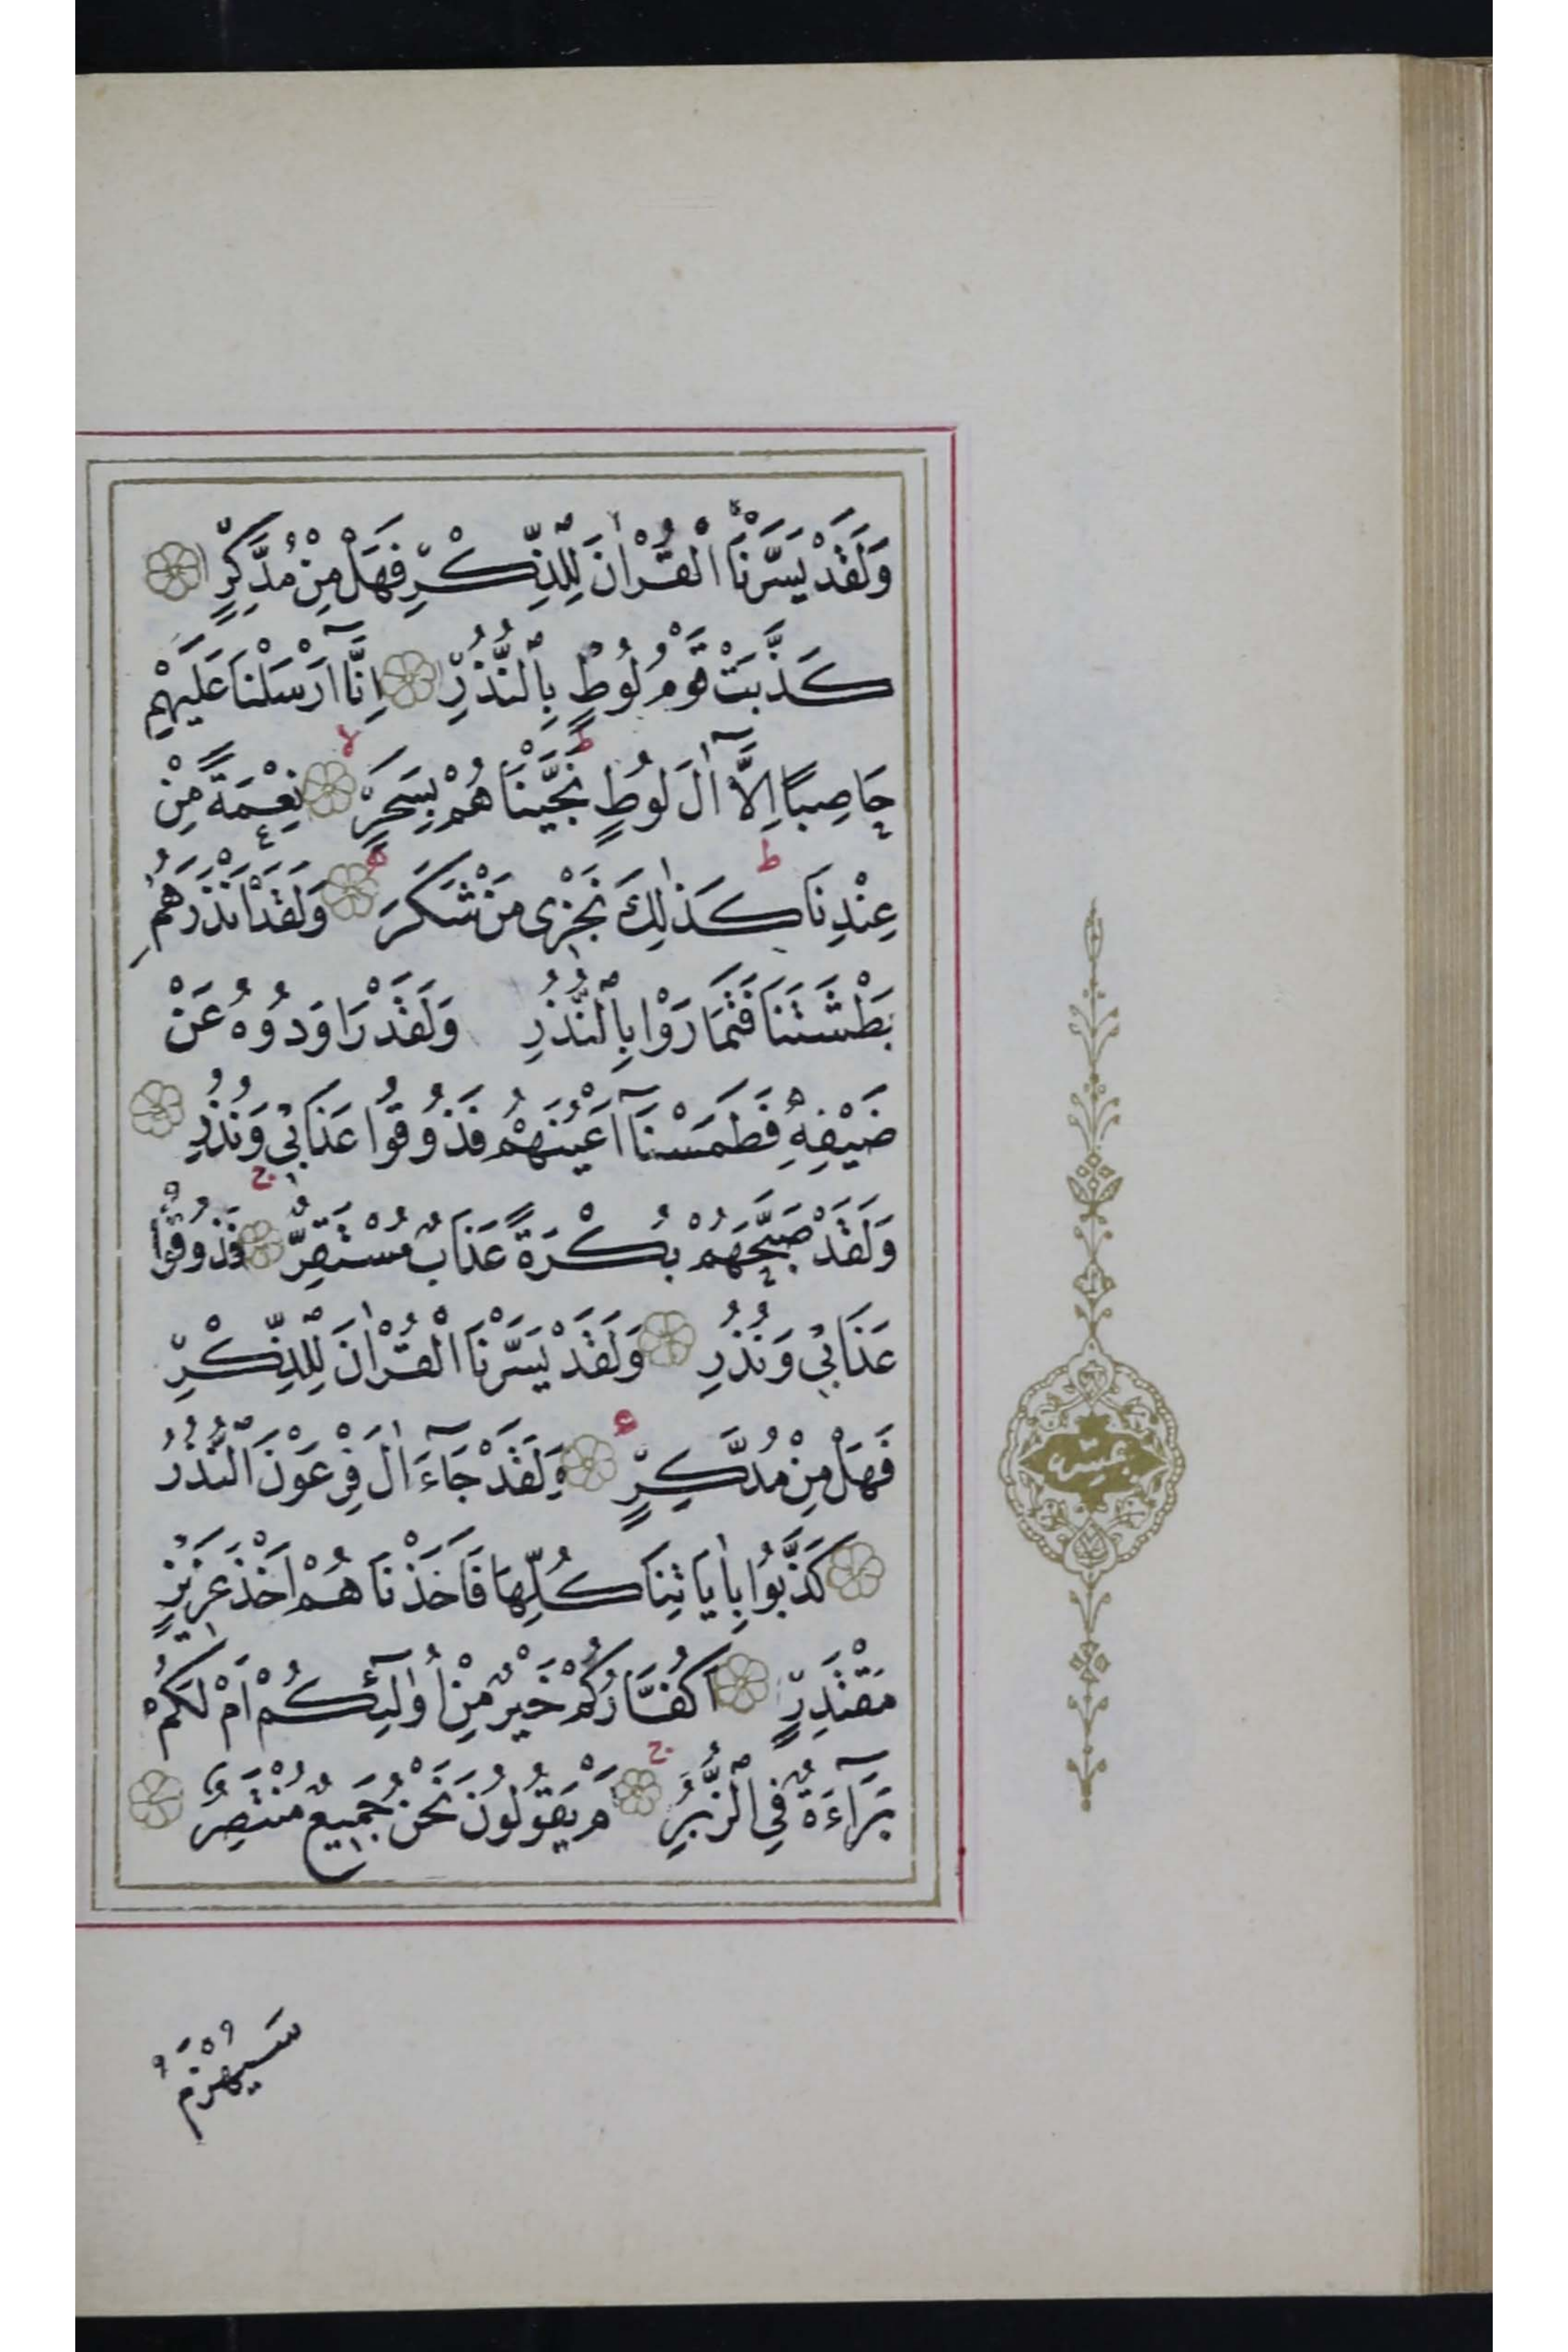 وَلَقَدْ يَسَّرْنَا الْقُرْاٰنَ لِلذِّكْرِ فَهَلْ مِنْ مُدَّكِرٍ
كَذَّبَتْ قَوْمُ لُوطٍ بِالنُّذُرِ اِنَّٓا اَرْسَلْنَا عَلَيْهِمْ
حَاصِبًا اِلَّٓا اٰلَ لُوطٍ نَجَّيْنَاهُمْ بِسَحَرٍ نِعْمَةً مِنْ
عِنْدِنَا كَذٰلِكَ نَجْزِى مَنْ شَكَرَ وَلَقَدْ اَنْذَرَهُمْ
بَطْشَتَنَا فَتَمَارَوْا بِالنُّذُرِ وَلَقَدْ رَاوَدُوهُ عَنْ
ضَيْفِهِ فَطَمَسْنَٓا اَعْيُنَهُمْ فَذُوقُوا عَذَابِى وَنُذُرِ
وَلَقَدْ صَبَّحَهُمْ بُكْرَةً عَذَابٌ مُسْتَقِرٌّ فَذُوقُوا
عَذَابِى وَنُذُرِ وَلَقَدْ يَسَّرْنَا الْقُرْاٰنَ لِلذِّكْرِ
فَهَلْ مِنْ مُدَّكِرٍ وَلَقَدْ جَٓاءَ اٰلَ فِرْعَوْنَ النُّذُرُ
كَذَّبُوا بِاٰيَاتِنَا كُلِّهَا فَاَخَذْنَاهُمْ اَخْذَ عَزِيزٍ
مُقْتَدِرٍ اَكُفَّارُكُمْ خَيْرٌ مِنْ اُولٰٓئِكُمْ اَمْ لَكُمْ
بَرَٓاءَةٌ فِى الزُّبُرِ اَمْ يَقُولُونَ نَحْنُ جَمِيعٌ مُنْتَصِرٌ
سَيُهْزَمُ